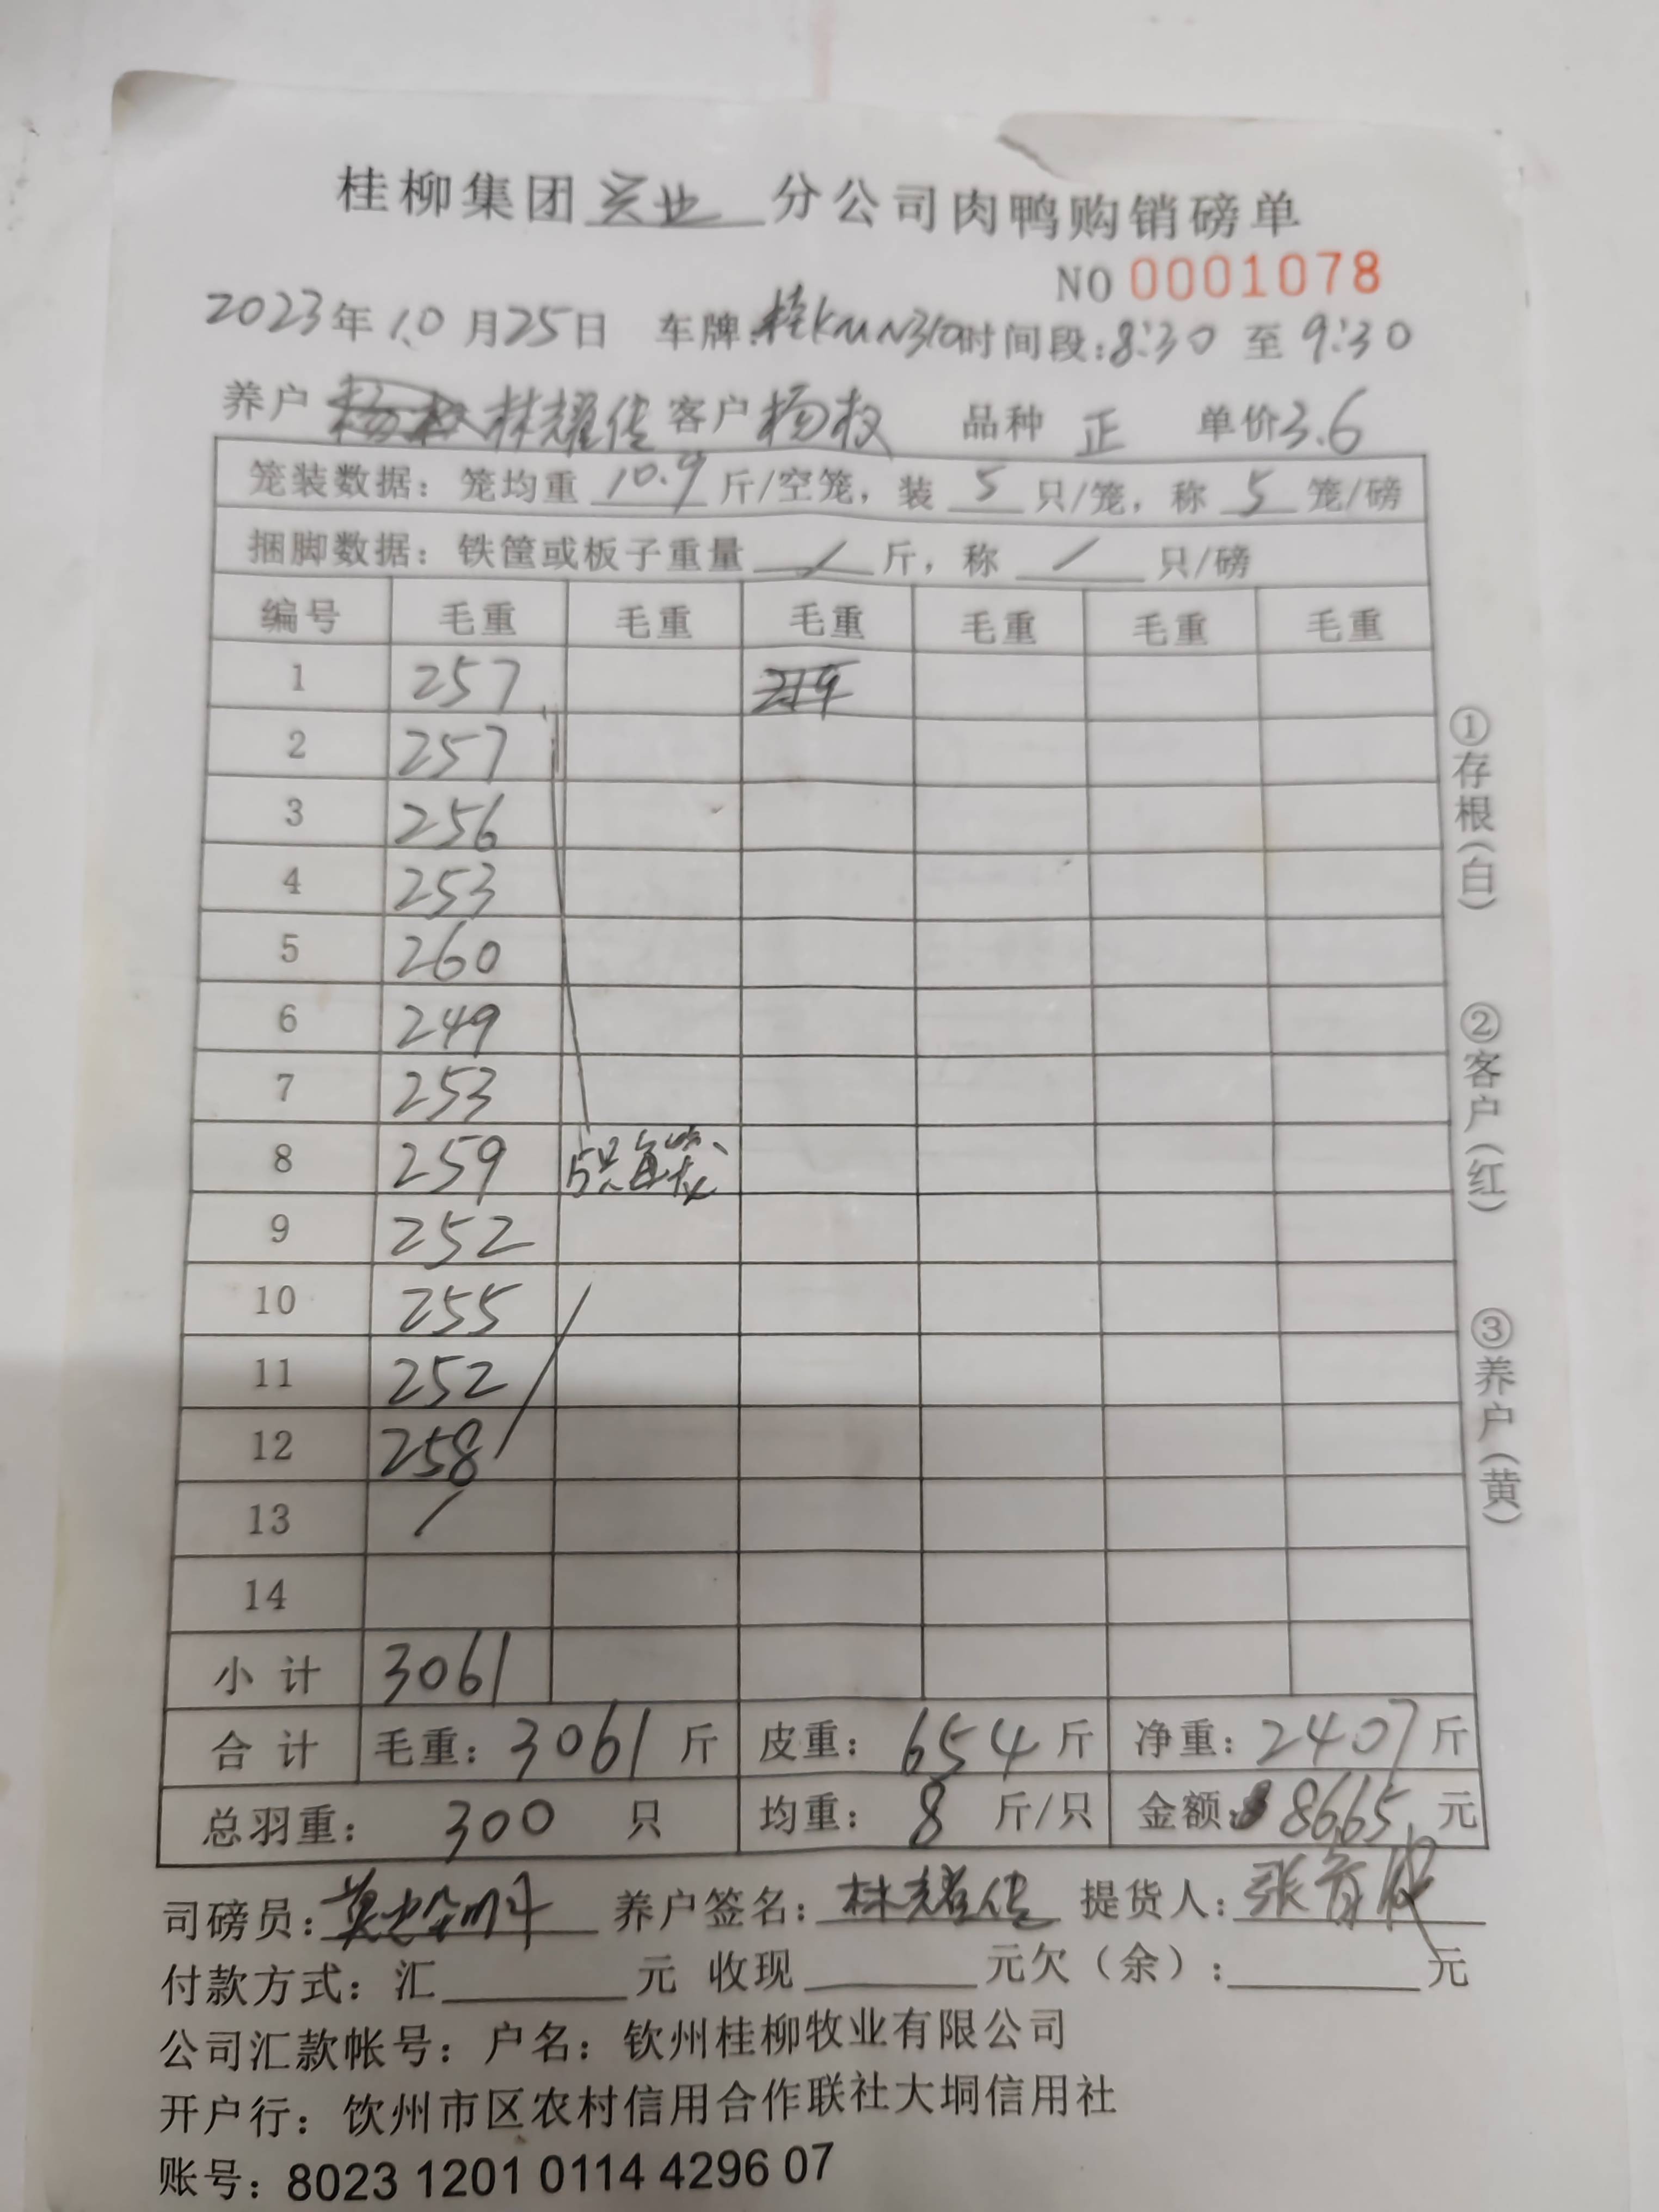 桂柳集团 兴业 分公司肉鸭购销磅单
NO 0001078
2023年10月25日 车牌:桂KMN310时间段:8:30 至 9:30
养户 林耀传 客户 杨权 品种 正 单价3.6
笼装数据: 笼均重 10.9 斤/空笼, 装 5 只/笼, 称 5 笼/磅
捆脚数据: 铁筐或板子重量 / 斤, 称 / 只/磅
编号 毛重 毛重 毛重 毛重 毛重 毛重
1 257
2 257
3 256
4 253
5 260
6 249
7 253
8 259 5只每笼
9 252
10 255
11 252
12 258
13 /
14
小计 3061
合计 毛重: 3061 斤 皮重: 654 斤 净重: 2407 斤
总羽重: 300 只 均重: 8 斤/只 金额: 8665 元
司磅员: 养户签名: 林耀传 提货人: 张
付款方式: 汇 元 收现 元欠(余): 元
公司汇款帐号: 户名: 钦州桂柳牧业有限公司
开户行: 饮州市区农村信用合作联社大垌信用社
账号: 8023 1201 0114 4296 07
①存根(白)
②客户(红)
③养户(黄)